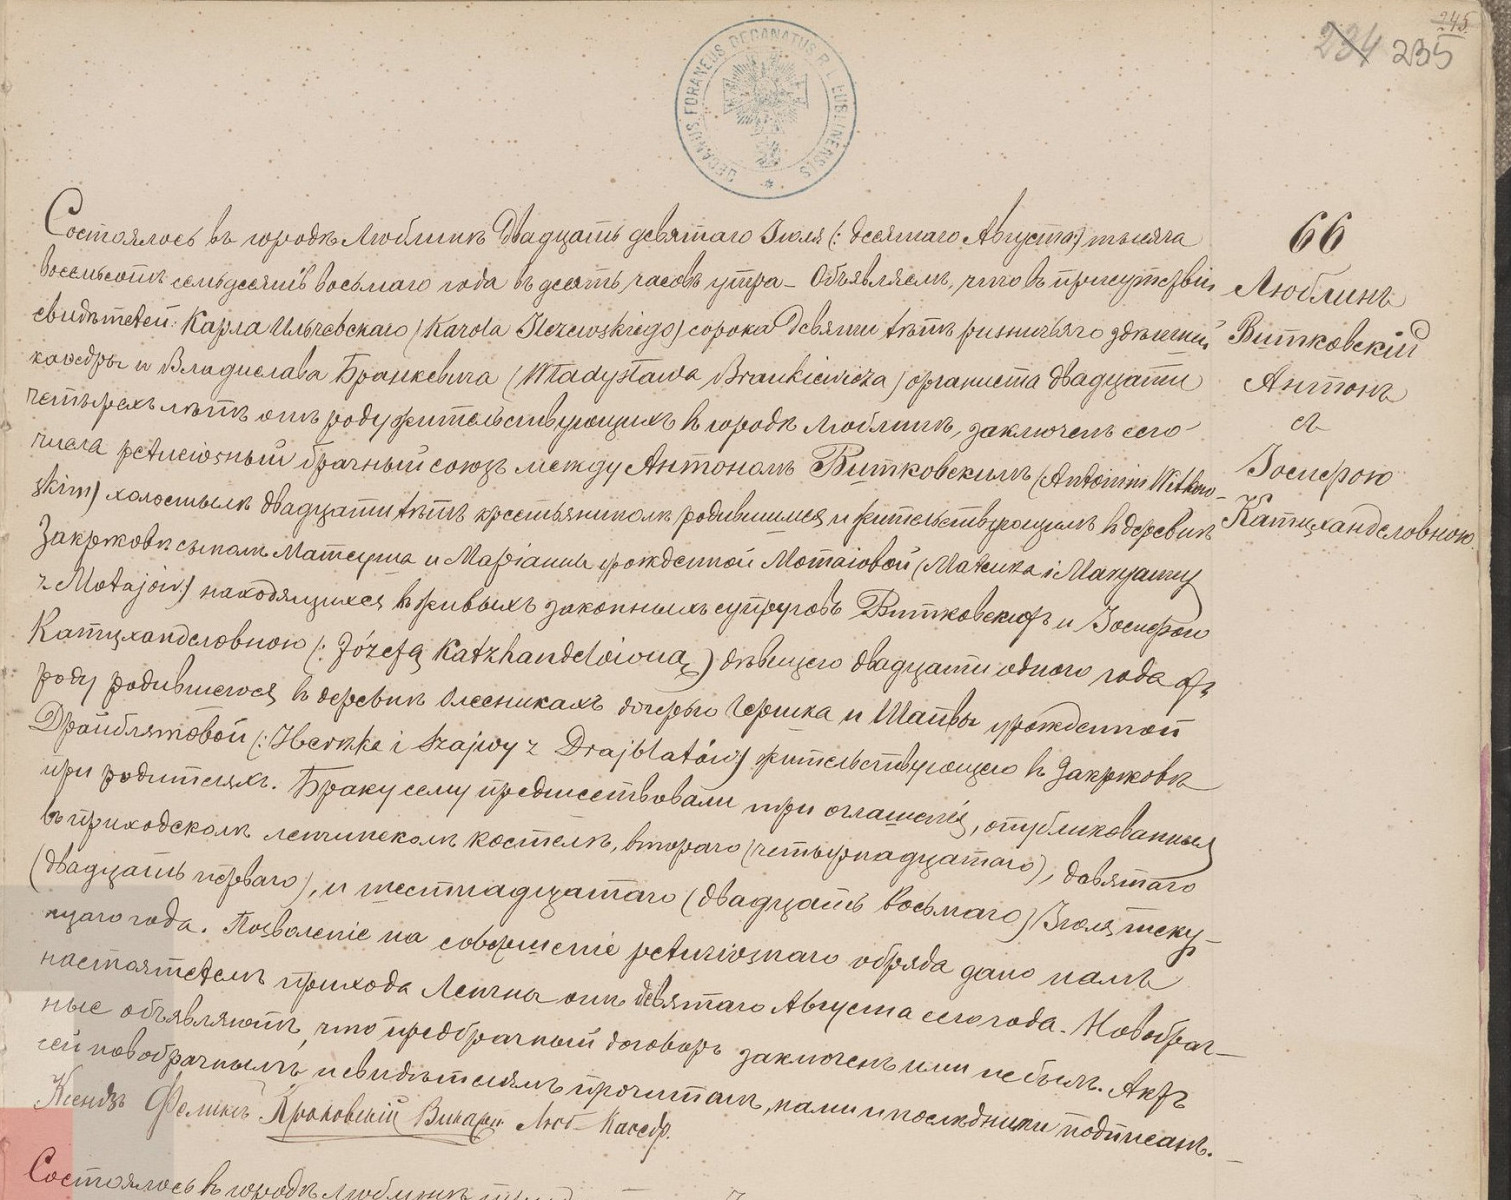 245
234 235
DECANUS FORANEUS DECANATUS R. L. LUBLINENSIS
66
Люблинъ
Витковскій
Антонъ
съ
Іосифою
Катцхандсловною
Состоялось въ городѣ Люблинѣ Двадцать девятаго Іюля (: десятаго Августа:) тысяча
восемьсотъ семьдесятъ восьмаго года въ десять часовъ утра – Объявляемъ, что въ присутствіи
свидѣтелей: Карла Ильчевскаго (Karola Ilczewskiego) сорока девяти лѣтъ ризничьяго здѣшней
каѳедры и Владислава Бранкевича (Władysława Brankiewicza) органиста двадцати
четырехъ лѣтъ отъ роду жительствующихъ въ городѣ Люблинѣ, заключенъ сего
числа религіозный брачный союзъ между Антономъ Витковскимъ (Antonim Witkow–
skim) холостымъ двадцати лѣтъ крестьяниномъ родившимся и жительствующимъ въ деревнѣ
Закржовѣ сыномъ Матеуша и Маріанны урожденной Мотаіовой (Mateusza i Maryanny
z Motajów) находящихся въ живыхъ законныхъ супруговъ Витковскихъ и Іосифою
Катцхандсловною (: Józefą Katzhandelówną) дѣвицею двадцати одного года отъ
роду родившеюся въ деревнѣ Олесникахъ дочерью Гершка и Шайвы урожденной
Драйблятовой (: Herszka i Szajwy z Drajblatów) жительствующею въ Закржовѣ
при родителяхъ. Браку сему предшествовали три оглашенія, опубликованныя
въ приходскомъ ленчинскомъ костелѣ, втораго (четырнадцатаго), девятаго
(двадцать перваго), и шестнадцатаго (двадцать восьмаго) Іюля теку–
щаго года. Позволеніе на совершеніе религіознаго обряда дано намъ
настоятелемъ прихода Ленчна отъ девятаго Августа сего года. Новобрач–
ные объявляютъ, что предбрачный договоръ заключенъ ими не былъ. Актъ
сей новобрачнымъ и свидѣтелямъ прочитанъ, нами и послѣдними подписанъ. –
Ксендзъ Феликсъ Викарій Люб Каѳедр.
Состоялось въ городѣ Люблинѣ